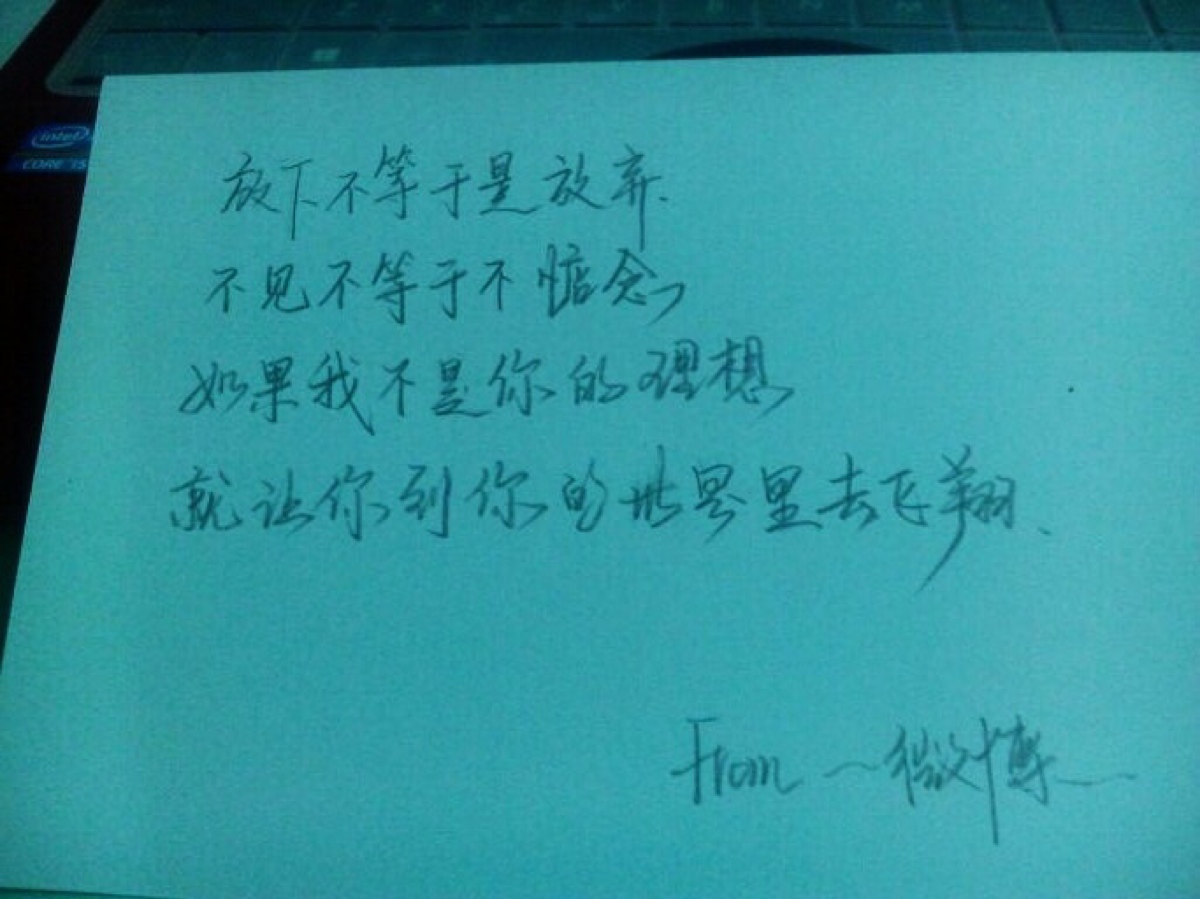 intel
CORE i5
放下不等于是放弃.
不见不等于不惦念,
如果我不是你的理想,
就让你到你的世界里去飞翔.
From ~微博~